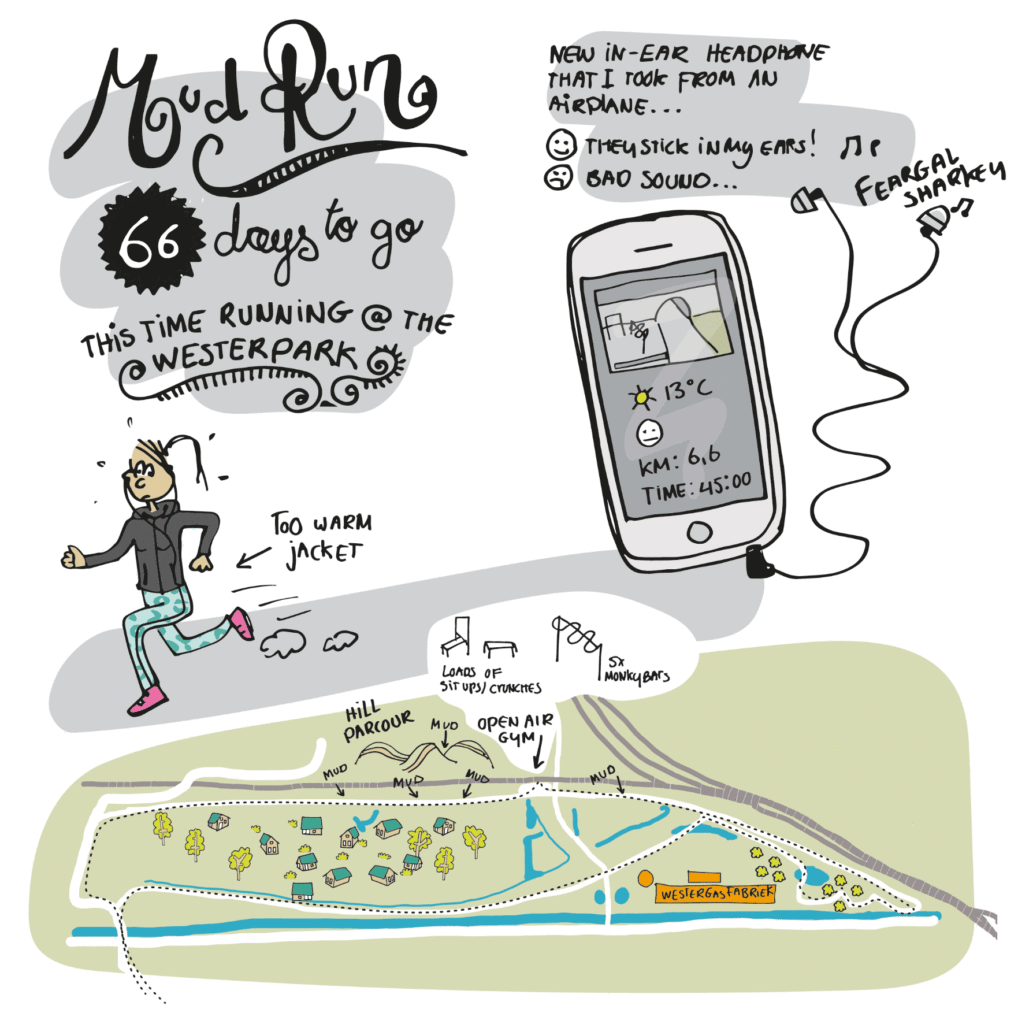 Mud Run
66 days to go
THIS TIME RUNNING @ THE
WESTERPARK
NEW IN-EAR HEADPHONE
THAT I TOOK FROM AN
AIRPLANE...
THEY STICK IN MY EARS!
BAD SOUND...
FEARGAL
SHARKEY
13°C
KM: 6,6
TIME: 45:00
TOO WARM
JACKET
LOADS OF
SIT UPS/CRUNCHES
5x
MONKYBARS
HILL
PARCOUR
MUD
OPEN AIR
GYM
MUD
MUD
MUD
MUD
WESTERGASFABRIEK